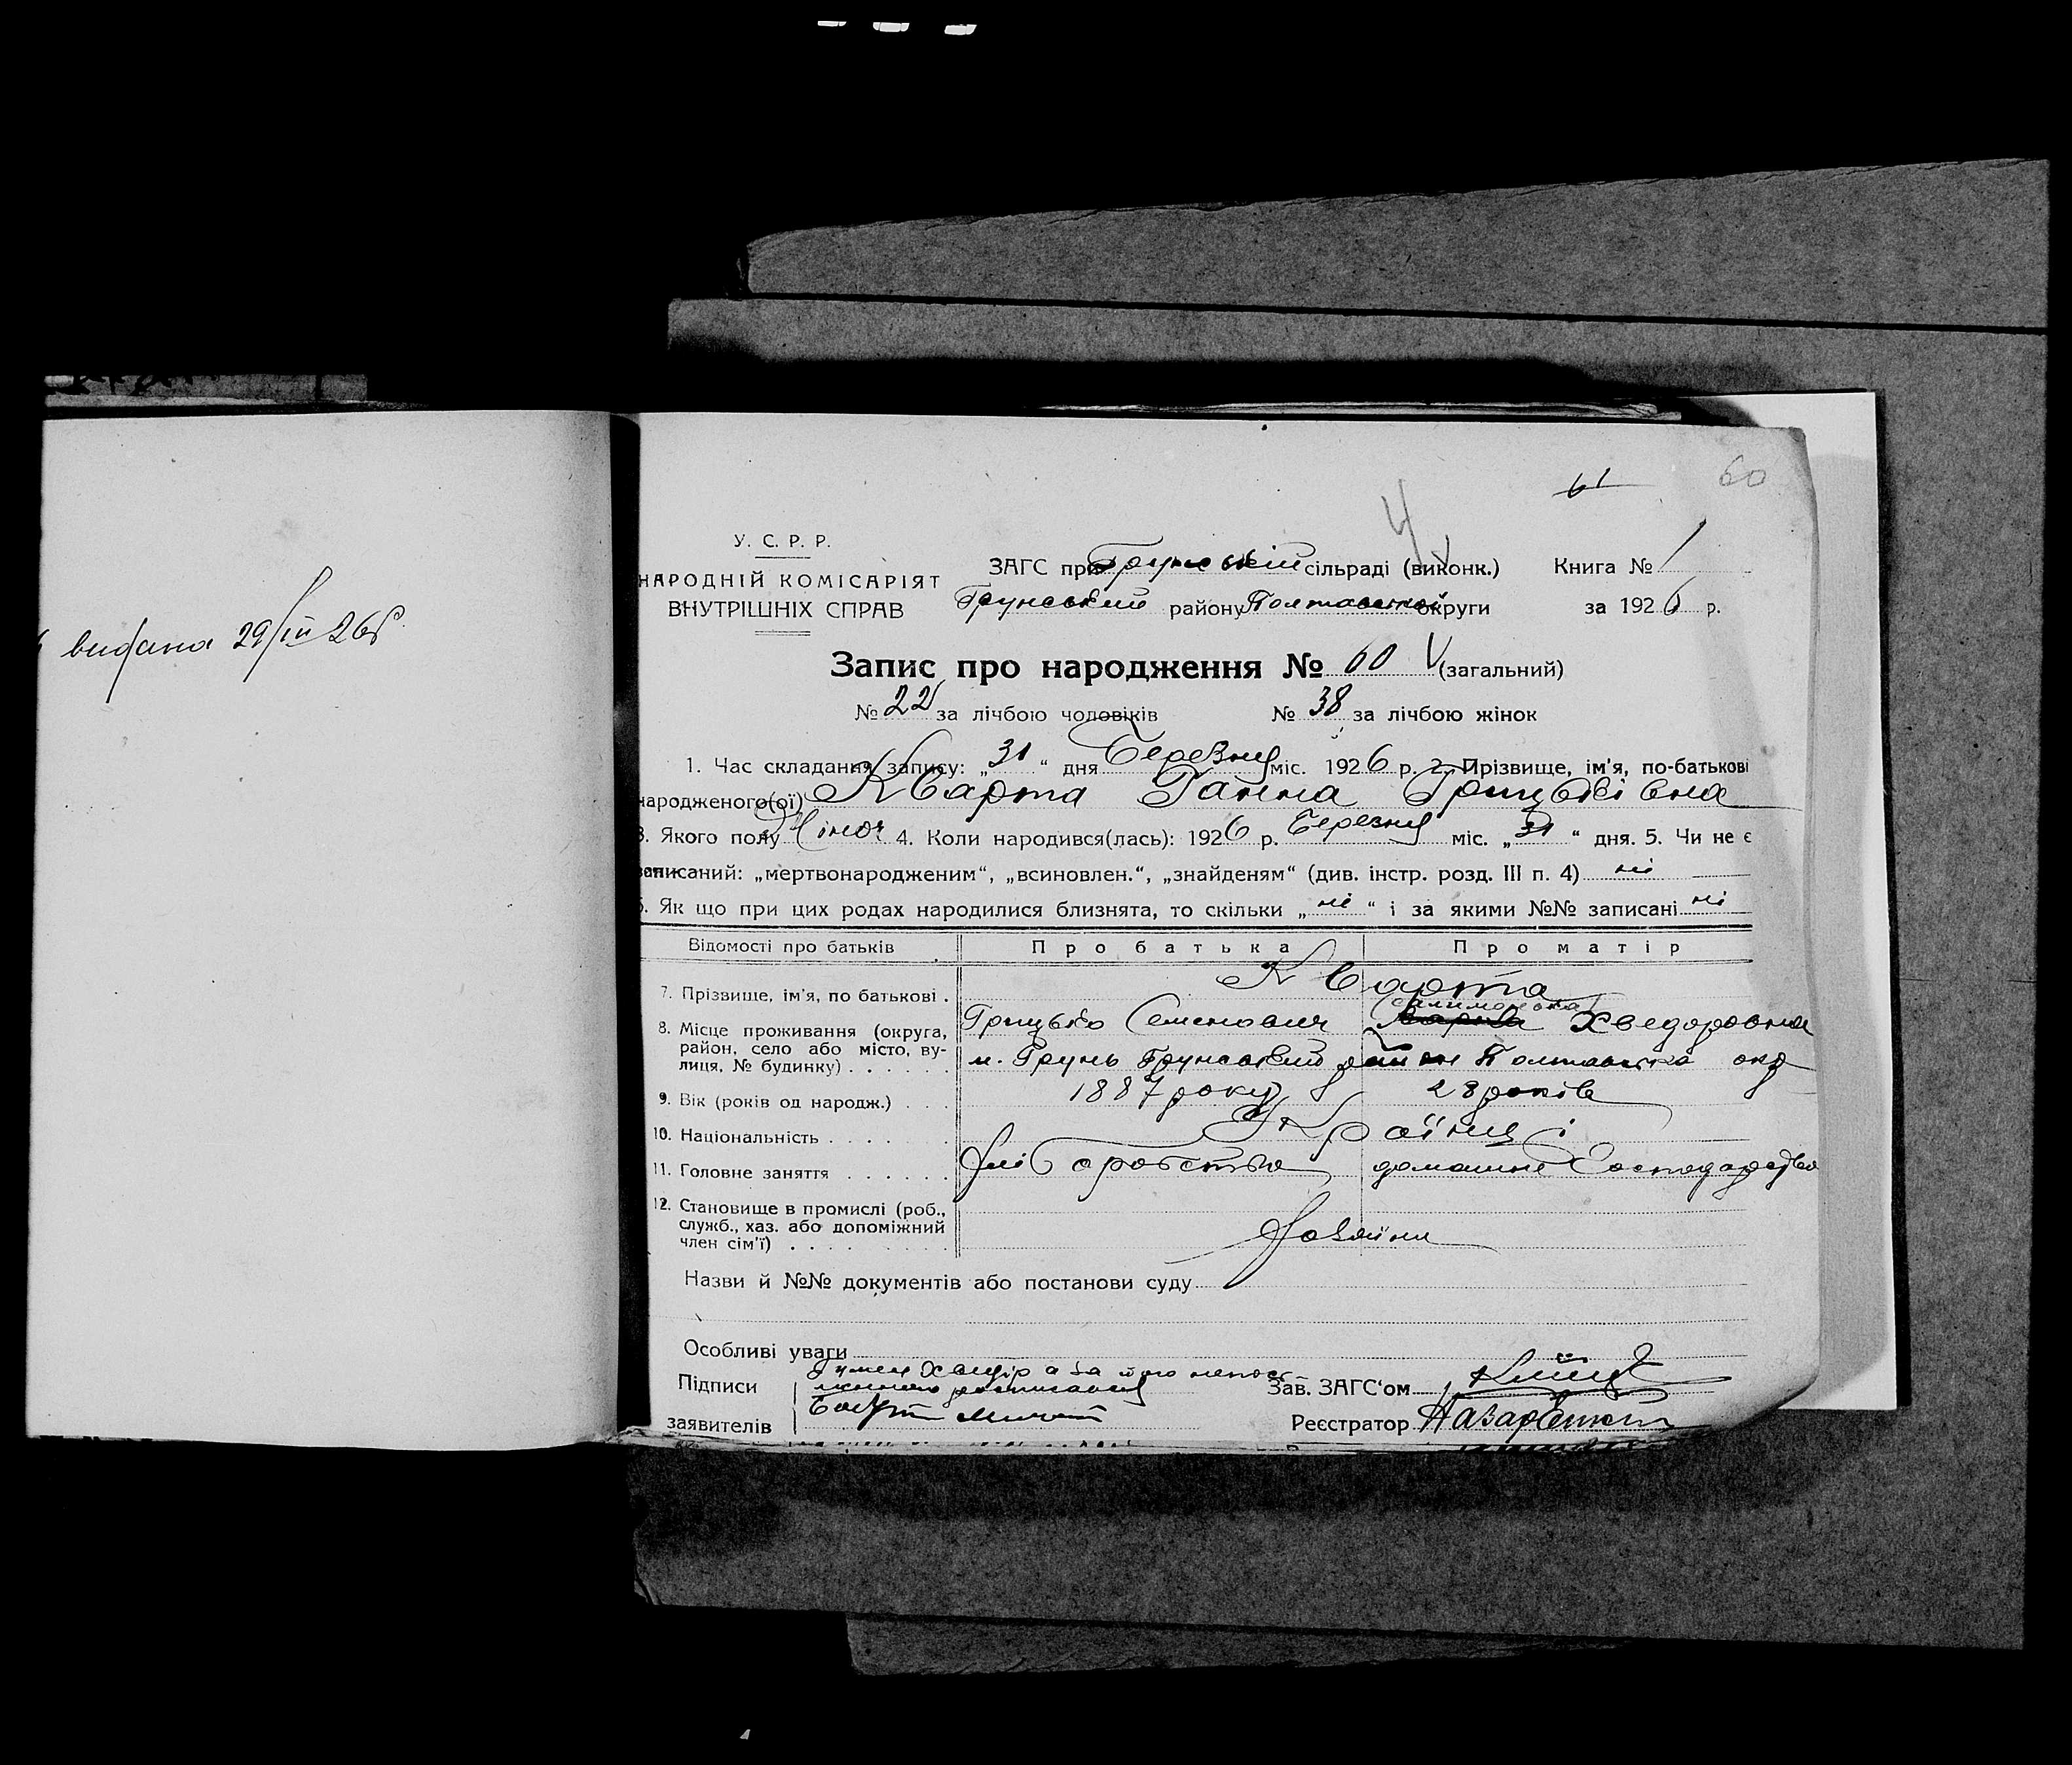 видана 29/III 26р.
61
60
4
У. С. Р. Р.
НАРОДНІЙ КОМІСАРІЯТ
ВНУТРІШНІХ СПРАВ
ЗАГС при Грунській сільраді (виконк.)
Грунський району Полтавської округи
Книга № 1
за 1926 р.
Запис про народження № 60 V (загальний)
№ 22 за лічбою чоловіків № 38 за лічбою жінок
1. Час складання запису: „31“ дня Березня міс. 1926 р. 2. Прізвище, ім'я, по-батькові
народженого(ої) Кварта Ганна Грицьківна
3. Якого полу Жіноч. 4. Коли народився(лась): 1926 р. Березня міс. „31“ дня. 5. Чи не є
записаний: „мертвонародженим“, „всиновлен.“, „знайденям“ (див. інстр. розд. III п. 4) ні
6. Як що при цих родах народилися близнята, то скільки „ні“ і за якими №№ записані ні
Відомості про батьків Про батька Про матір
7. Прізвище, ім'я, по батькові . Кварта
Грицько Семенович Хведоровна
8. Місце проживання (округа, район, село або місто, вулиця, № будинку) . . . . . .
м. Грунь Грунський район Полтавська окр
9. Вік (років од народж.) . . . 1887 року 28 років
10. Національність . . . . . . Українці
11. Головне заняття . . . . . . хліборобство домашнє господарство
12. Становище в промислі (роб.,
служб., хаз. або допоміжний
член сім'ї) . . . . . . . . . Хозяїни
Назви й №№ документів або постанови суду
Особливі уваги
Підписи
заявителів
Хведір а за його непос-
менного росписався
Зав. ЗАГС'ом
Реєстратор Назаренко